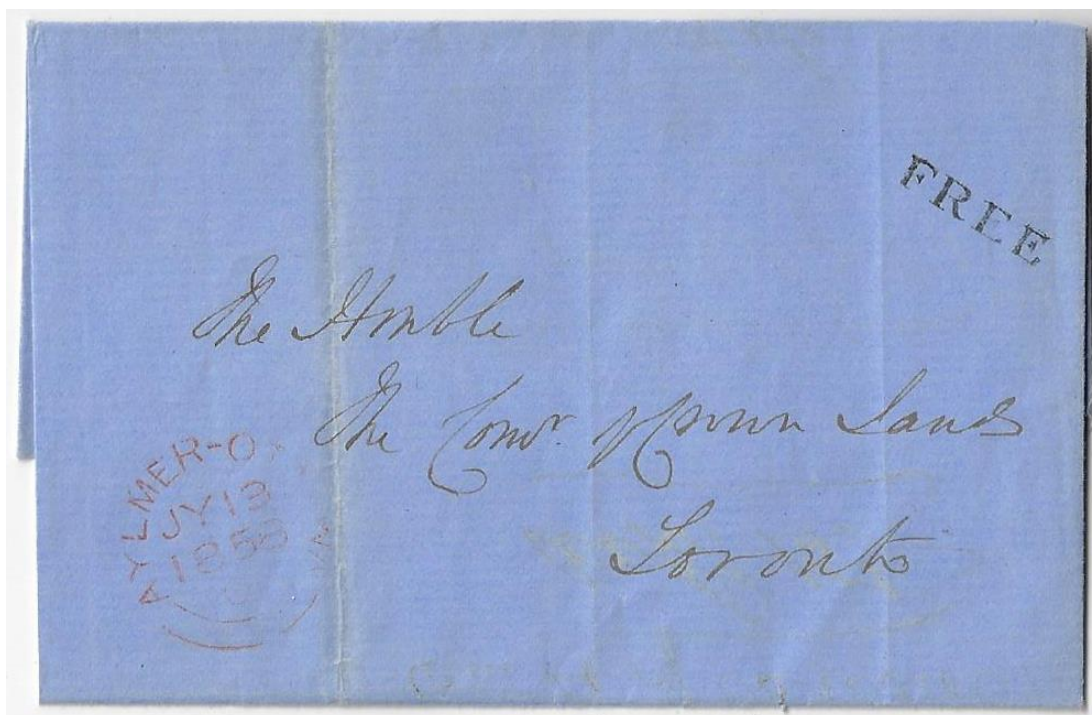 FREE
The Honble
The Comr of Crown Lands
Toronto
AYLMER-O
JY 13
185